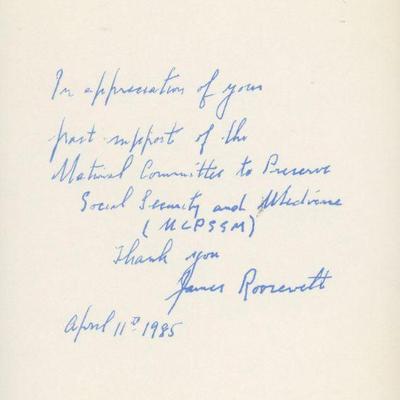 In appreciation of your
past support of the
National Committee to Preserve
Social Security and Medicine
(NCPSSM)
Thank you
James Roosevelt
April 11th 1985